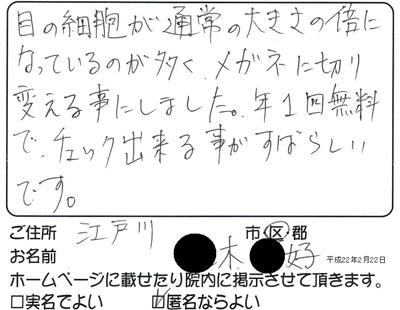 目の細胞が通常の大きさの倍に
なっているのが多く、メガネに切り
変える事にしました。年1回無料
で、チェック出来る事がすばらしい
です。
ご住所 江戸川 市・区・郡
お名前 木 好 平成22年2月22日
ホームページに載せたり院内に掲示させて頂きます。
□実名でよい ☑匿名ならよい